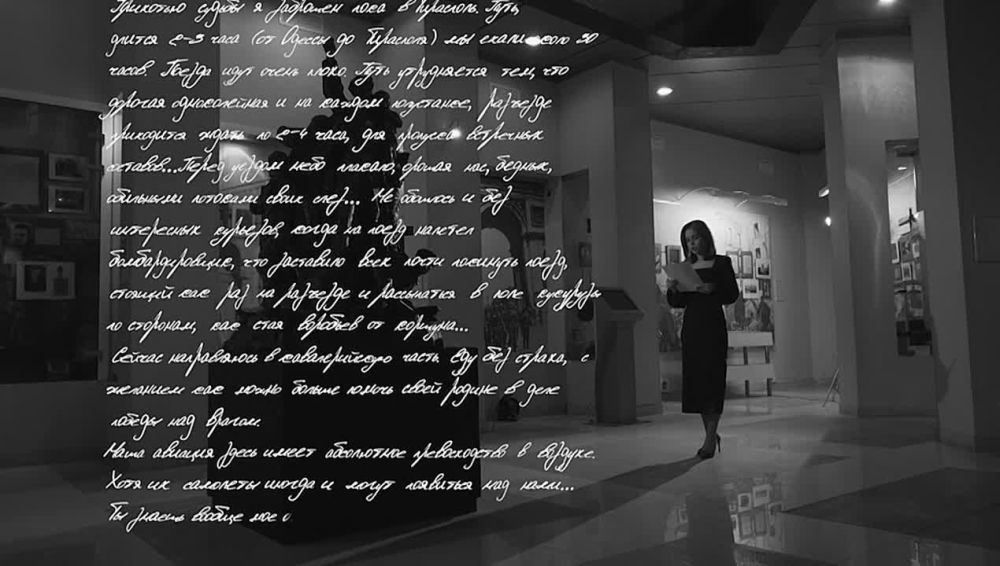 Прихотью судьбы я заброшен пока в Тирасполь. Путь,
длится 2-3 часа (от Одессы до Тирасполя) мы ехали около 30
часов. Поезда идут очень плохо. Путь утрудняется тем, что
дорогая одноколейная и на каждом полустанке, разъезде
приходится ждать по 2-4 часа, для пропуска встречных
составов...Перед уездом небо плакало, орошая нас, бедных,
обильными потоками своих слез... Не обошлось и без
интересных курьезов, когда на поезд налетел
бомбардировщик, что заставило всех почти покинуть поезд,
стоящий как раз на разъезде и рассыпаться в поле кукурузы
по сторонам, как стая воробьев от коршуна...
Сейчас направляюсь в кавалерийскую часть Еду без страха, с
желанием как можно больше помочь своей родине в деле
победы над врагом.
Наша авиация здесь имеет абсолютное превосходство в воздухе.
Хотя их самолеты иногда и могут появиться над нами...
Ты знаешь вообще мое о